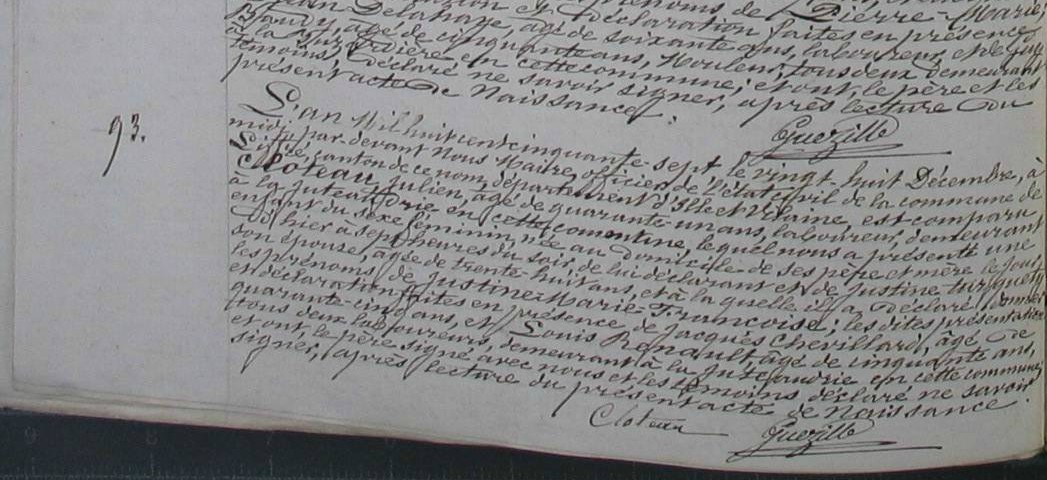 prénoms de Pierre-Marie,
Jean Delahaye, âgé de soixante ans, laboureur, et de
Baudy, âgé de cinquante ans, Meulier, tous deux demeurant
à la dière en cette commune, et ont, le père et les
témoins, déclaré ne savoir signer, après lecture du
présent acte de Naissance.
Guezille
93.
L'an Mil huit cent cinquante-sept, le vingt-huit Décembre, à
midi, par-devant Nous Maire, officier de l'état civil de la commune de
canton de ce nom, département d'Ille et Vilaine, est comparu
Cloteau, Julien, âgé de quarante un ans, laboureur, demeurant
à la Juteaudrie en cette commune, lequel nous a présenté une
enfant du sexe féminin, née au domicile de ses père et mère le jour
d'hier à sept heures du soir, de lui déclarant et de Justine
son épouse, âgée de trente-huit ans, et à laquelle il a déclaré donner
les prénoms de Justine-Marie-Françoise; les dites présentation
et déclaration faites en présence de Jacques Chevillard, âgé de
quarante-cinq ans, et Louis Renault, âgé de cinquante ans,
tous deux laboureurs, demeurant à la Juteaudrie en cette commune,
et ont, le père signé avec nous et les témoins déclaré ne savoir
signer, après lecture du présent acte de Naissance.
Cloteau Guezille